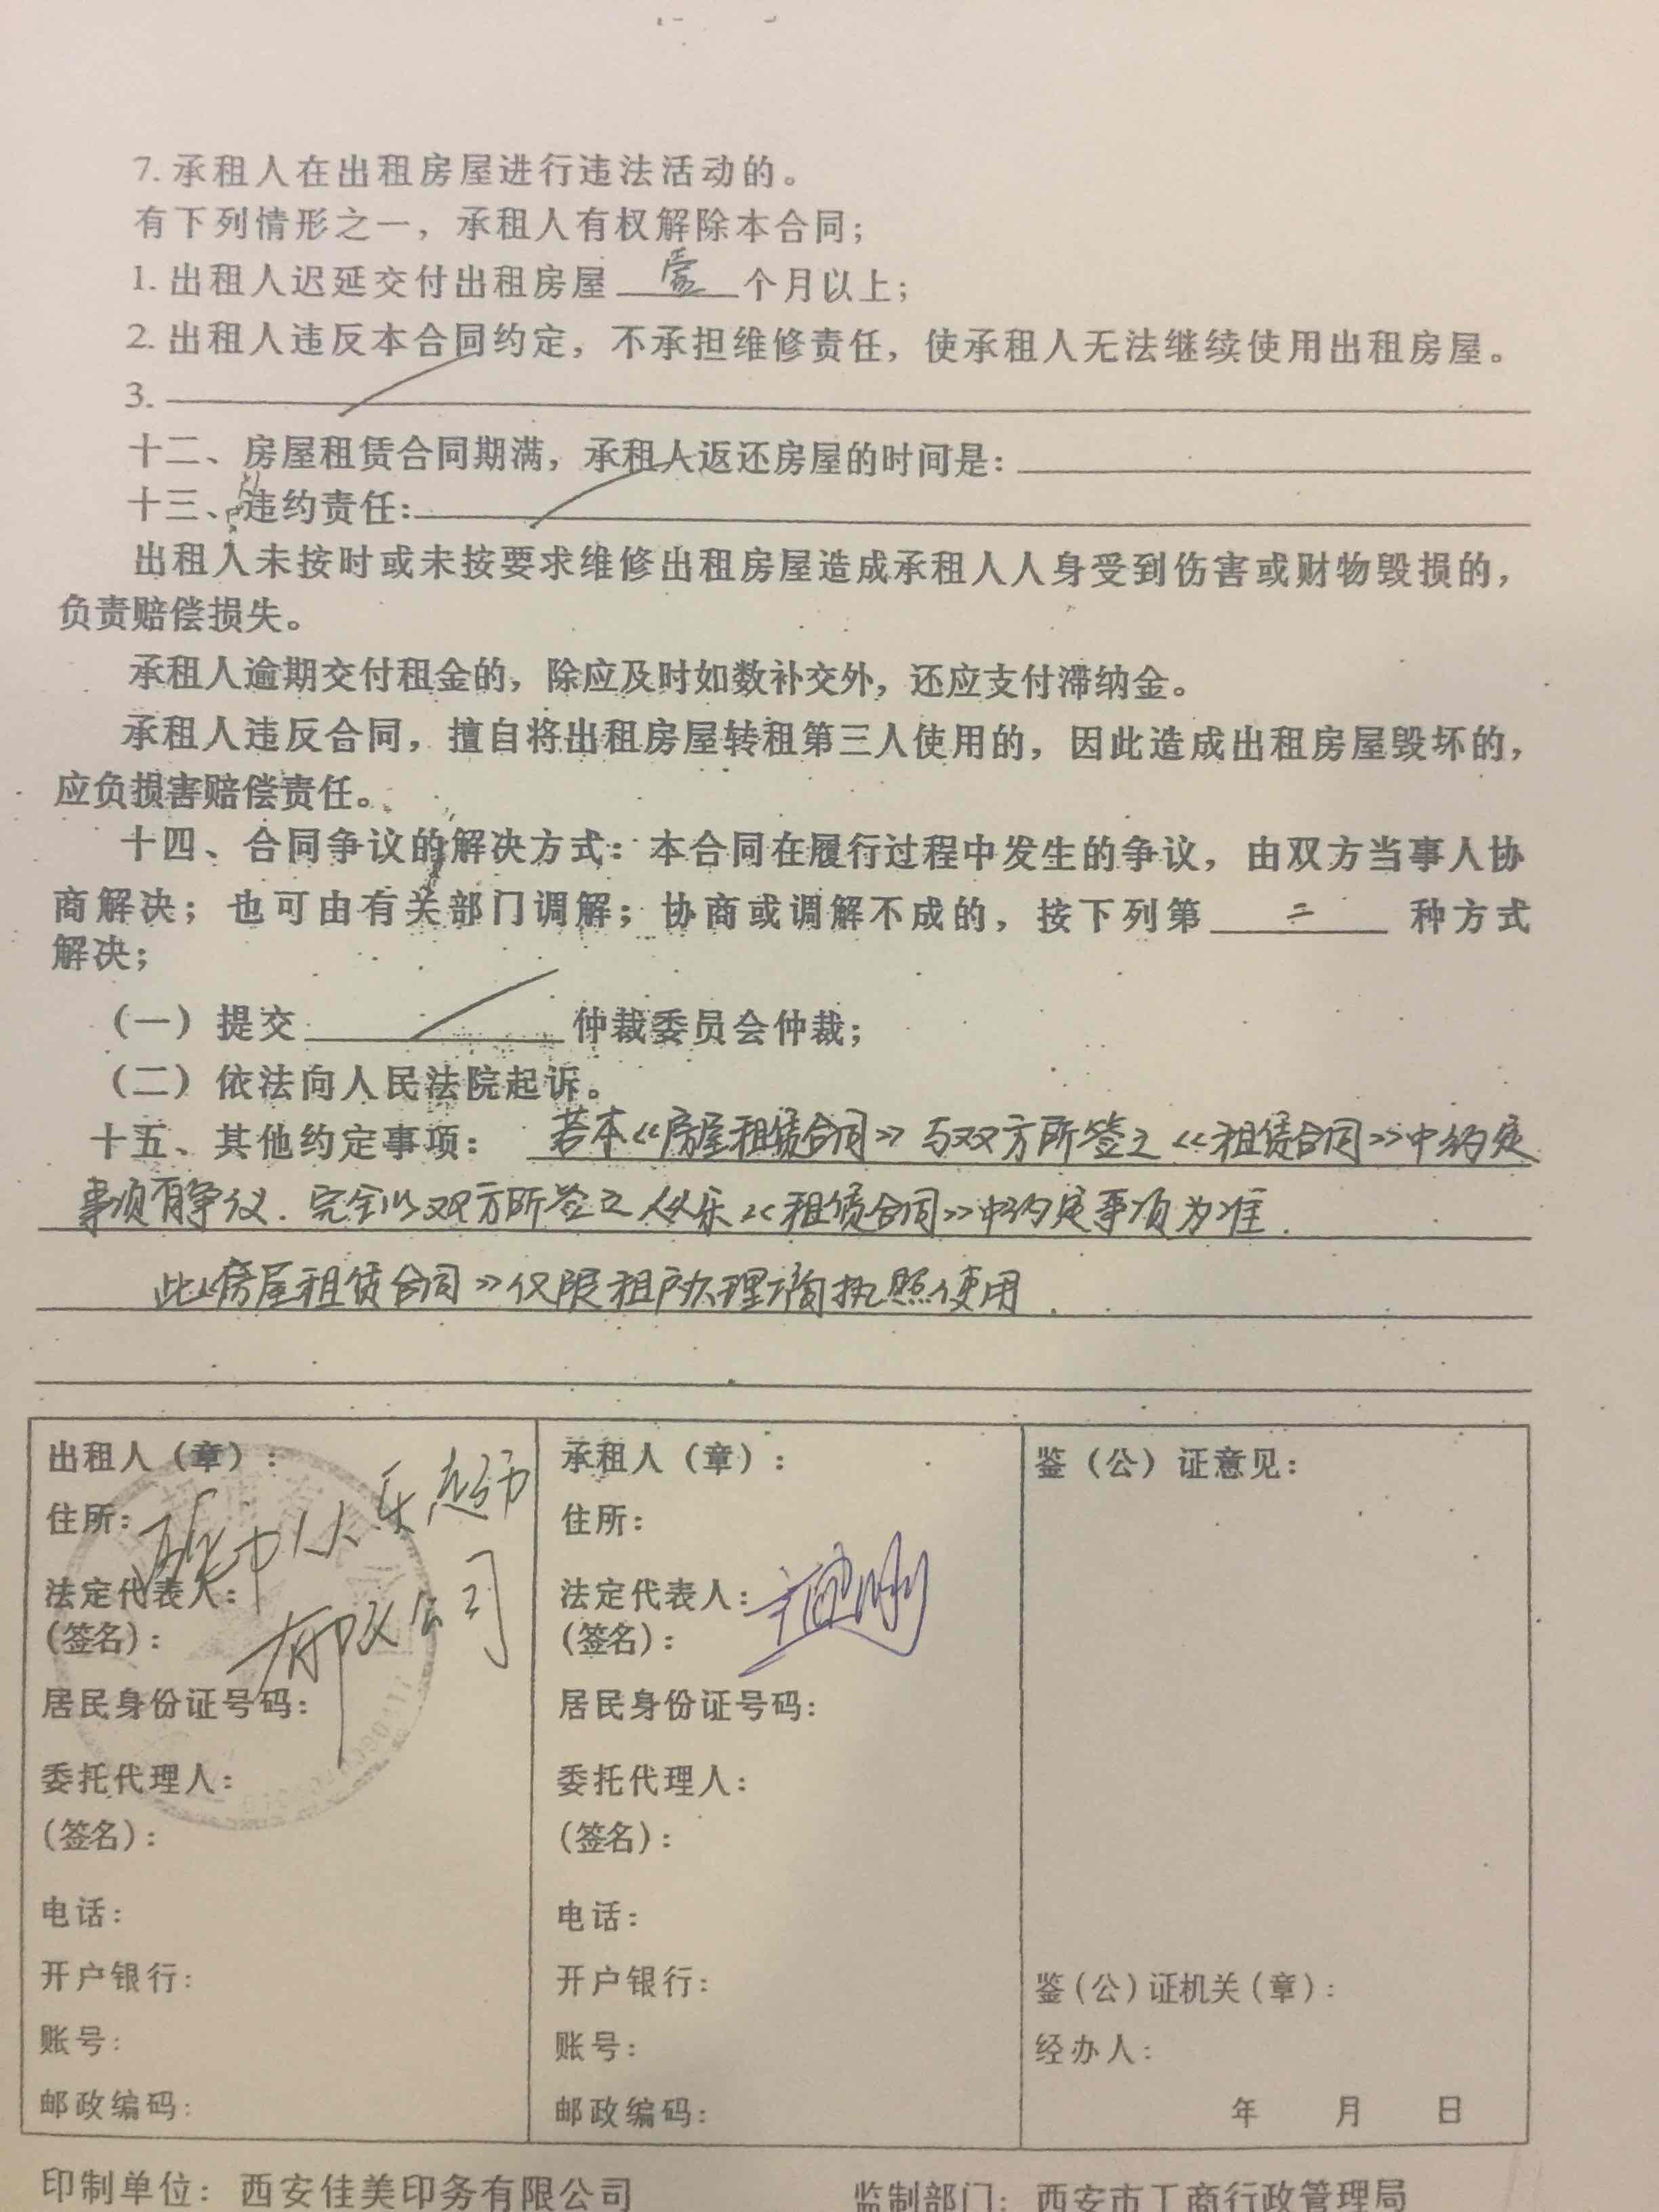 7. 承租人在出租房屋进行违法活动的。
有下列情形之一，承租人有权解除本合同；
1. 出租人迟延交付出租房屋 壹 个月以上；
2. 出租人违反本合同约定，不承担维修责任，使承租人无法继续使用出租房屋。
3.
十二、房屋租赁合同期满，承租人返还房屋的时间是：
十三、违约责任：
出租人未按时或未按要求维修出租房屋造成承租人人身受到伤害或财物毁损的，
负责赔偿损失。
承租人逾期交付租金的，除应及时如数补交外，还应支付滞纳金。
承租人违反合同，擅自将出租房屋转租第三人使用的，因此造成出租房屋毁坏的，
应负损害赔偿责任。
十四、合同争议的解决方式：本合同在履行过程中发生的争议，由双方当事人协
商解决；也可由有关部门调解；协商或调解不成的，按下列第 二 种方式
解决；
（一）提交 仲裁委员会仲裁；
（二）依法向人民法院起诉。
十五、其他约定事项： 若本《房屋租赁合同》与双方所签之《租赁合同》中约定
事项有争议．完全以双方所签之人人乐《租赁合同》中约定事项为准．
此《房屋租赁合同》仅限租户办理 执照使用．
出租人（章）：
住所：
人人乐超市
法定代表人：
有限公司
(签名)：
居民身份证号码：
委托代理人：
(签名)：
电话：
开户银行：
账号：
邮政编码：
承租人（章）：
住所：
法定代表人：
(签名)：
居民身份证号码：
委托代理人：
(签名)：
电话：
开户银行：
账号：
邮政编码：
鉴（公）证意见：
鉴（公）证机关（章）：
经办人：
年 月 日
印制单位：西安佳美印务有限公司 监制部门：西安市工商行政管理局